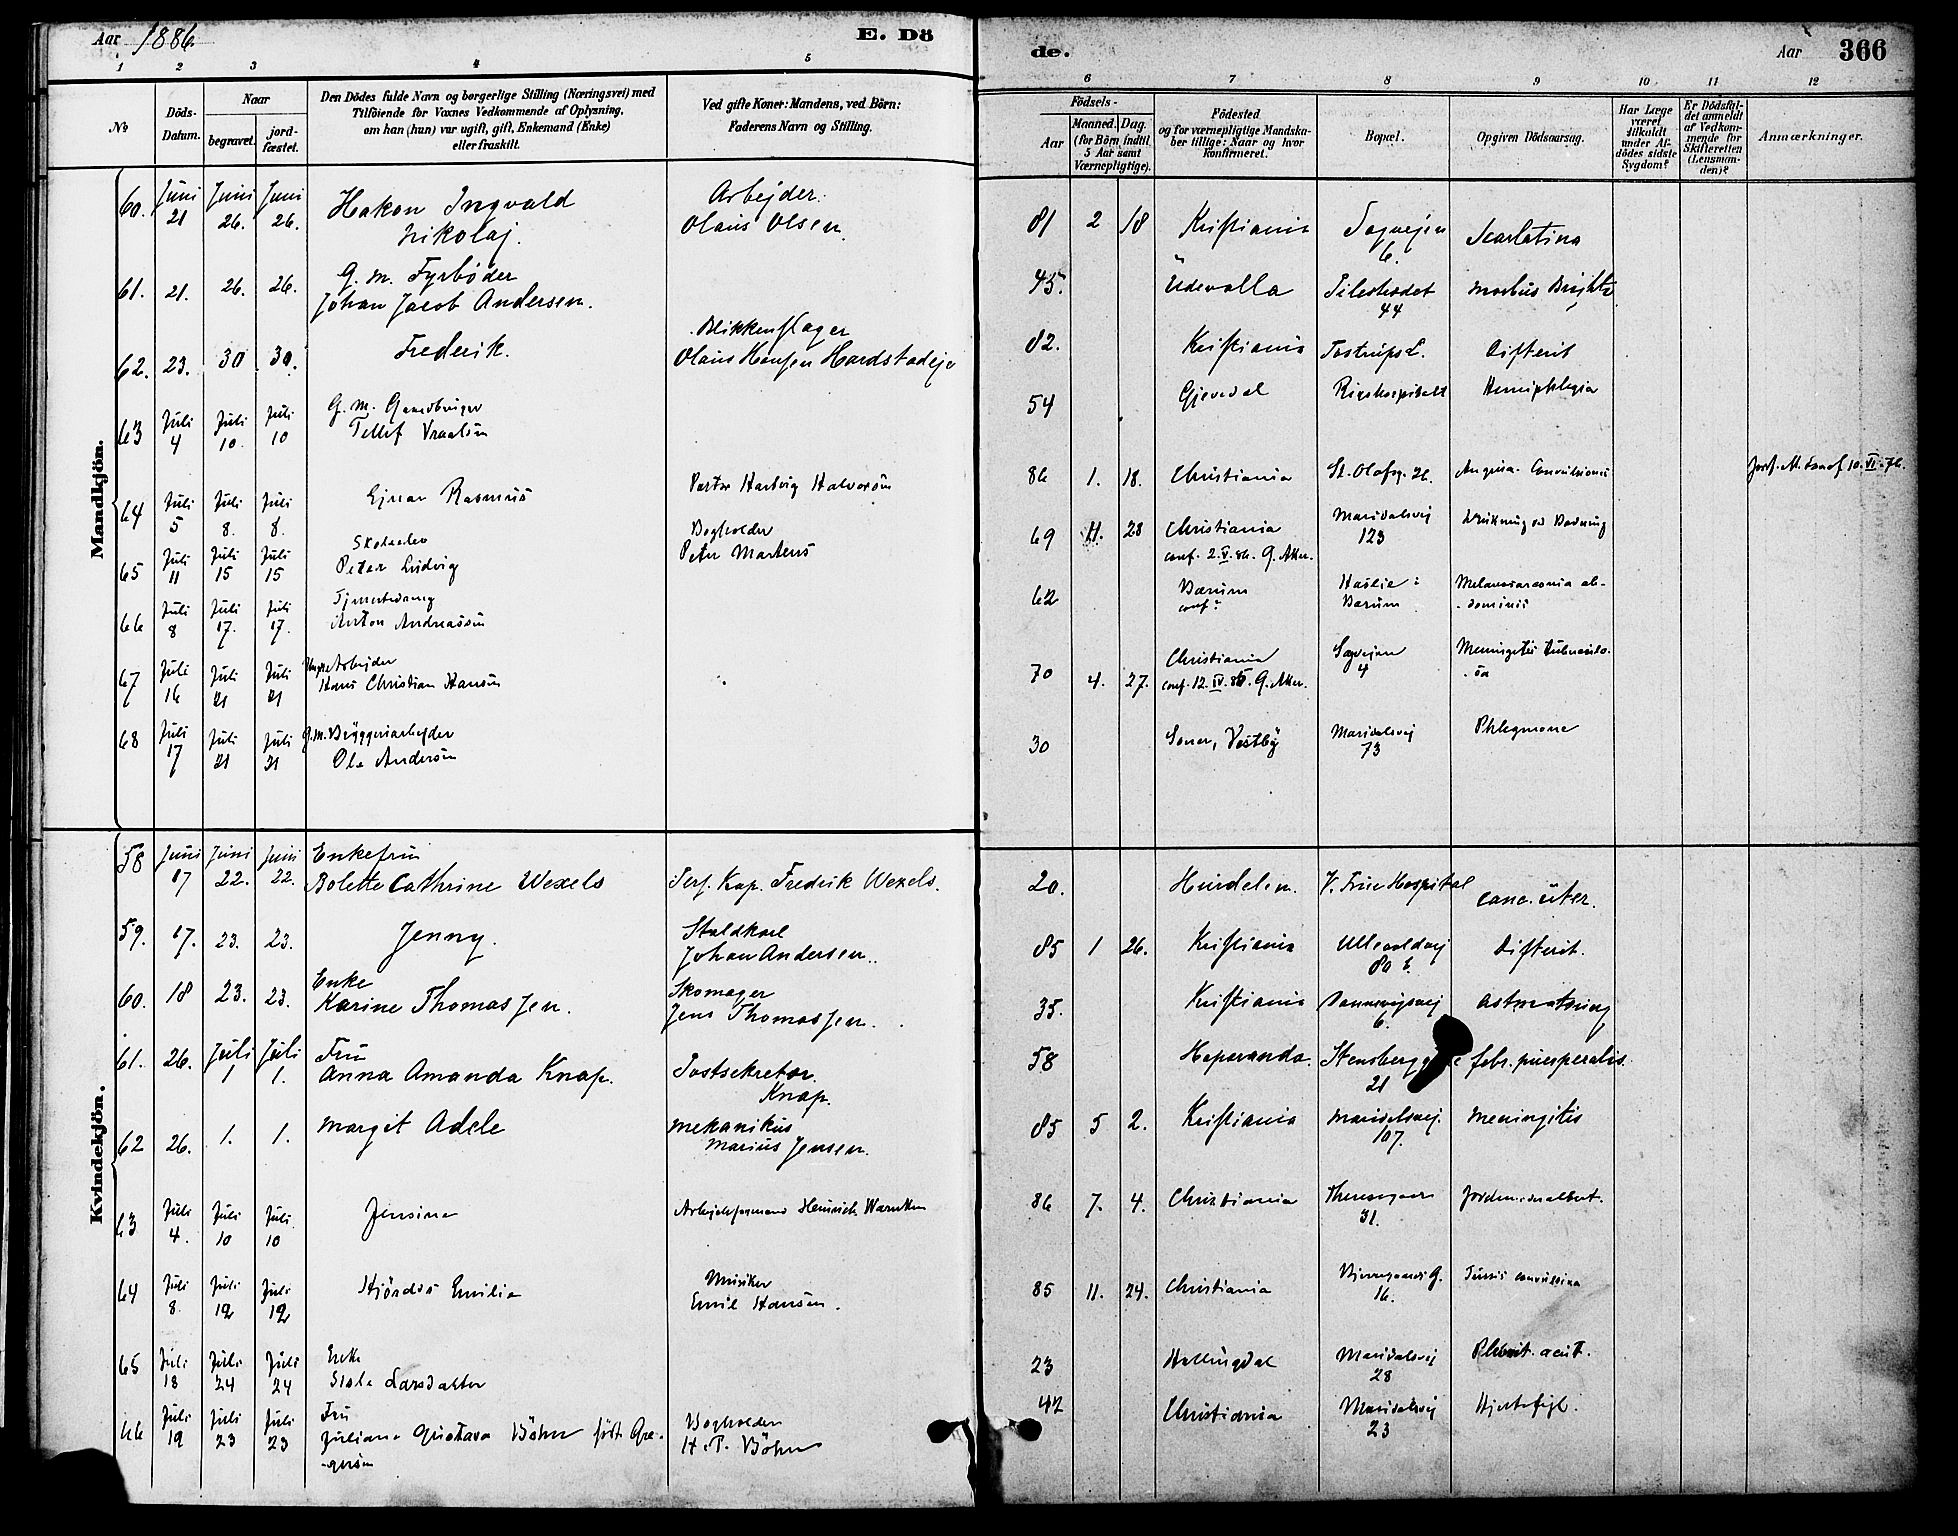 Aar 1886.
E. Dö
de.
Aar 366
1 2 3 4 5
6 7 8 9 10 11 12
No
Döds-Datum.
Naar
begravet.
jord-fæstet.
Den Dödes fulde Navn og borgerlige Stilling (Næringsvei) med
Tilföiende for Voxnes Vedkommende af Oplysning,
om han (hun) var ugift, gift, Enkemand (Enke)
eller fraskilt.
Ved gifte Koner: Mandens, ved Börn:
Faderens Navn og Stilling.
Födsels-
Aar
Maaned. Dag.
(for Börn indtil
5 Aar samt
Værnepligtige).
Födested
og for værnepligtige Mandska-
ber tillige: Naar og hvor
konfirmeret.
Bopæl.
Opgiven Dödsaarsag.
Har Læge
været
tilkaldt
under Af-
dödes sidste
Sygdom?
Er Dödsfal-
det anmeldt
af Vedkom-
mende for
Skifteretten
(Lensman-
den)?
Anmærkninger.
Mandkjön.
60. Juni 21 Juni 26. Juni 26. Hakon Ingvald Nikolaj. Arbejder. Olaus Olsen. 81 2 18 Kristiania Sagvejen 6. Scarlatina
61. 21. 26. 26. G. M. Fyrböder Johan Jacob Andersen. 45. Udevalla Telesteadet 44 Morbus Brightii
62. 23. 30 30. Frederik. Blikkenslager Olaus Hansen 82. Kristiania Tostrups L. Difterit
63 Juli 4 Juli 10. Juli 10 G. M. Gaardbruger Tellef Vraalsen 54 Gjevedal Rigshospitalet Hemiphlegia
64 Juli 5 Juli 8. Juli 8. Ejnar Rasmus Hartvig Halvorsen 86 1. 18. Christiania St. Olafsg. 26. Angina. Convulsioner
65 Juli 11 Juli 15 Juli 15 Skoleelev Peter Ludvig Bogholder Peter Martens 69 11. 28 Christiania conf. 2. V. 86. G. Aker. Maridalsvej 123 Drukning ved Badning
66 Juli 8 Juli 17. Juli 17. Tjenestedreng Anton Andreassen 62 Bærum conf? Haslie i Bærum Melanosarcomia ab-dominis
67 Juli 16 Juli 21 Juli 21 Arbejder Hans Christian Hansen 70 4. 27. Christiania conf. 12. IV. 86. G. Aker. Sagvejen 4 Meningitis tuberculo-sa
68 Juli 17 Juli 21 Juli 21 G. M. Bryggeriarbejder Ole Andersen 30 Soner, Vestby Maridalsvej 73 Phlegmone
Kvindekjön.
58 Juni 17 Juni 22. Juni 22. Enkefru Bolette Cathrine Wexels Pers. Kap. Fredrik Wexels. 20. Hurdalen. V. Frue Hospital canc. uter.
59. 17. 23. 23. Jenny. Staldkarl Johan Andersen. 85 1 26. Kristiania Ullevoldvej 80 Difterit.
60. 18 23. 23. Enke Karine Thomassen. Skomager Jens Thomassen. 35. Kristiania Dannevigsvej 6. Astmatning
61. 26. Juli 1 Juli 1. Fru Anna Amanda Knap. Postsekretær Knap. 58 Haparanda. Stensberggade 21 febr. puerperalis.
62 26. 1. 1. Margit Adele Mekanikus Marius Jensen. 85 5 2. Kristiania Maridalsvej. 107. Meningitis
63 Juli 4. Juli 10 Juli 10 Jensine Arbejdsformand Heinrich Warncken 86 7. 4. Christiania Theresegaden 31.
64 Juli 8. Juli 12 Juli 12 Hjördis Emilie Musiker Emil Hansen. 85 11. 24. Christiania Bjerregaards G. 16. Tussis convulsiva
65 Juli 18 Juli 24 Juli 24 Enke Sisle Larsdatter 23 Hallingdal Maridalsvej 28 Pleurit. acut.
66 Juli 19 Juli 23 Juli 23 Fru Juliane Gustava Böhn född Gre-gersen Bogholder H. P. Böhn 42 Christiania Maridalsvej 23 Hjertefejl.